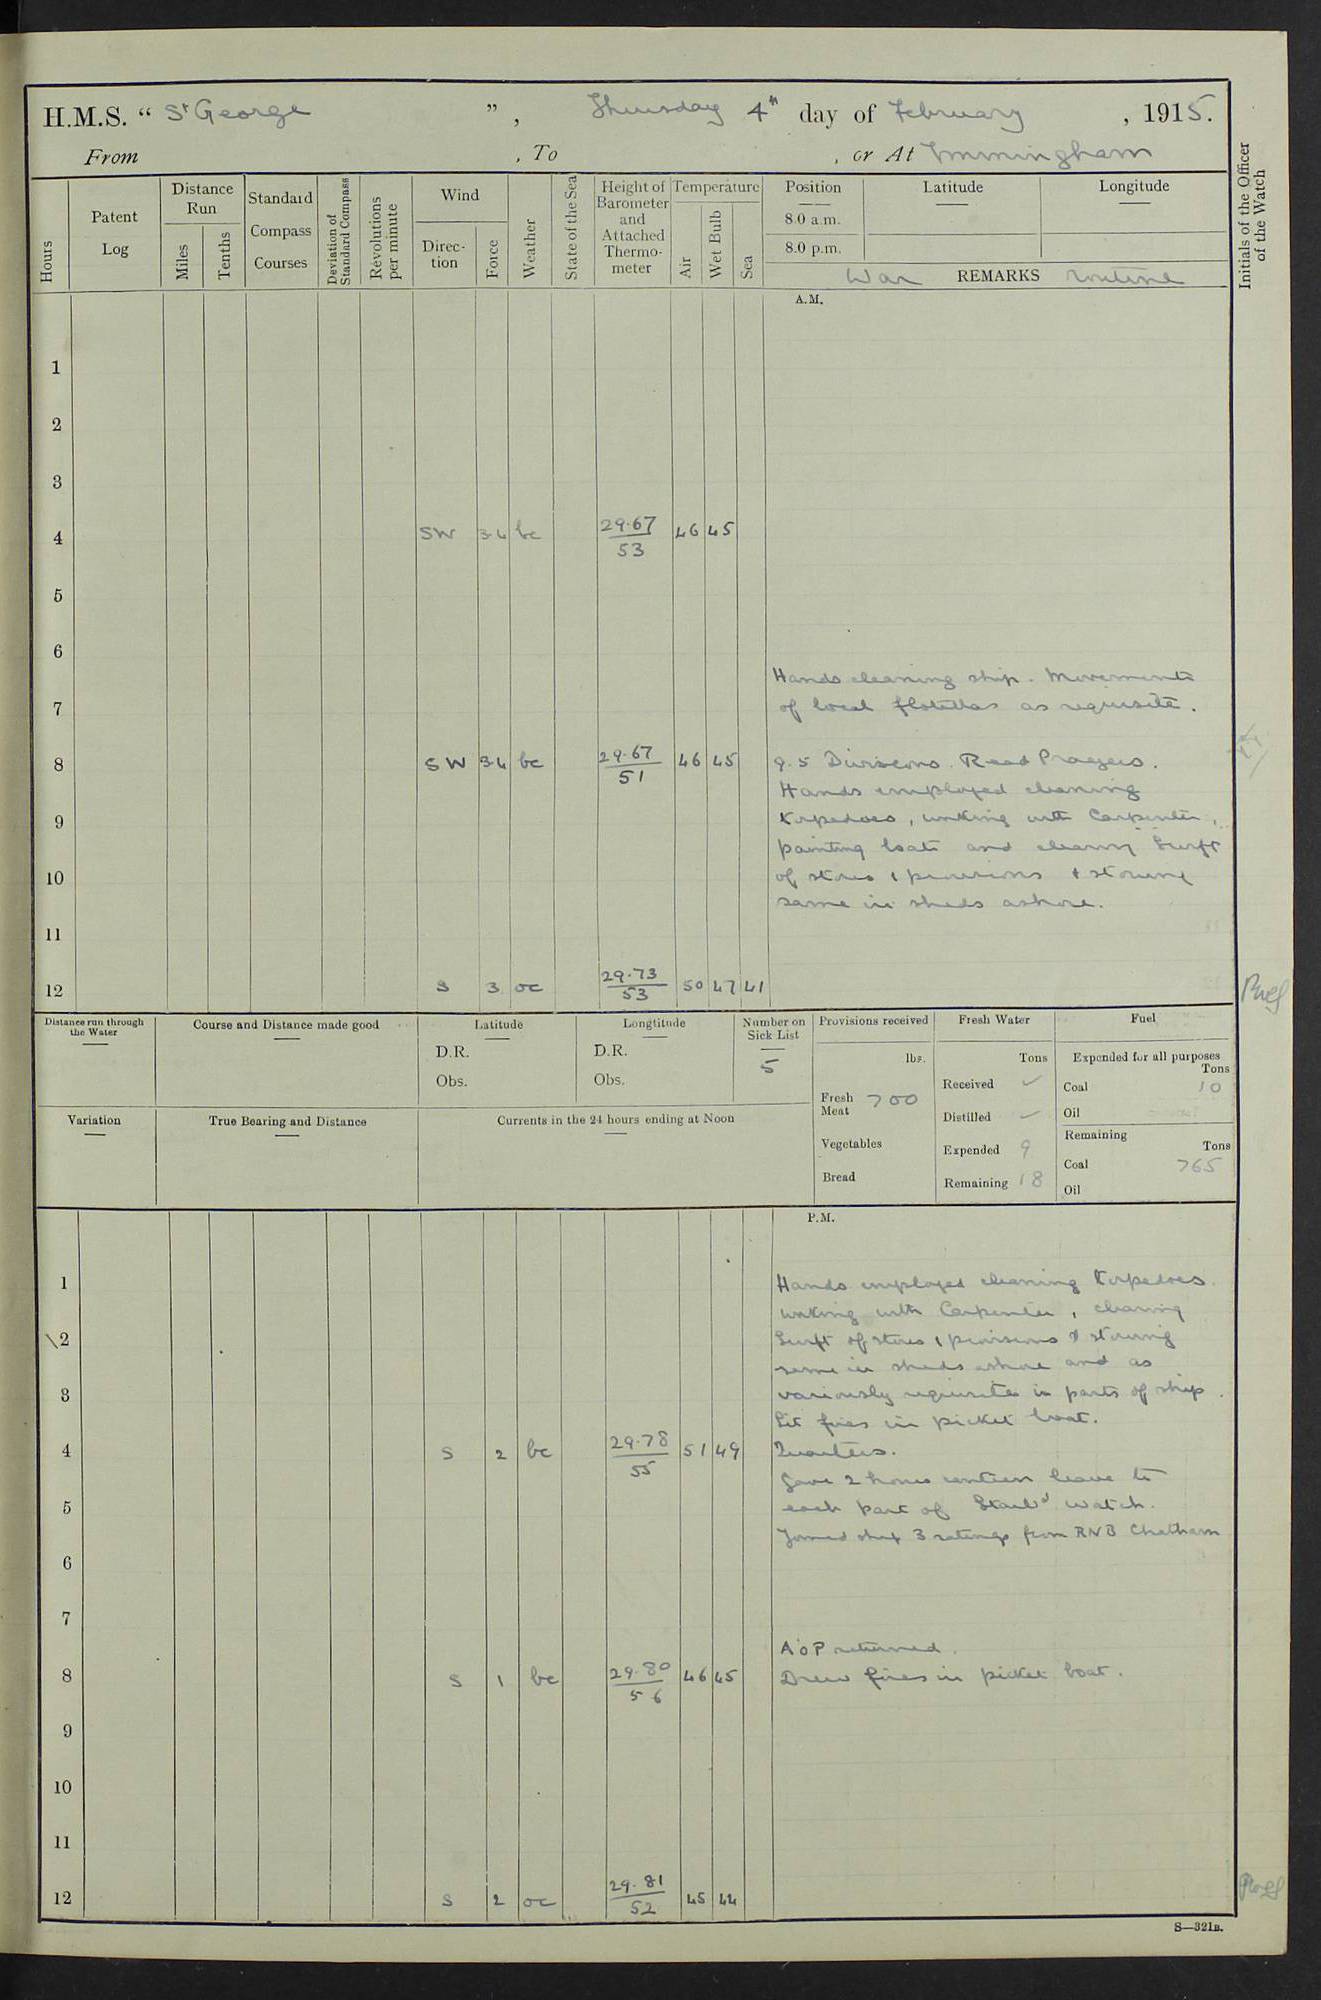 H.M.S. " St George ", Thursday 4th day of February, 1915.
From , To , or At Immingham
Hours
Patent Log
Distance Run
Miles
Tenths
Standard Compass Courses
Deviation of Standard Compass
Revolutions per minute
Wind
Direc-tion
Force
Weather
State of the Sea
Height of Barometer and Attached Thermo-meter
Temperature
Air
Wet Bulb
Sea
Position
8.0 a.m.
8.0 p.m.
Latitude
Longitude
Initials of the Officer of the Watch
War REMARKS routine
A.M.
1
2
3
4 SW 3-4 bc 29.67 46 45
53
5
6
Hands cleaning ship. Movements
7 of local flotillas as requisite.
8 SW 3-4 bc 29.67 46 45 9.5 Divisions. Read Prayers.
51
Hands employed cleaning
9 torpedoes, working with Carpenter,
painting boats and clearing Swift
10 of stores & provisions & storing
same in sheds ashore.
11
12 S 3 oc 29.73 50 47 41
53
Distance run through the Water
Course and Distance made good
Latitude
D.R.
Obs.
Longtitude
D.R.
Obs.
Number on Sick List
5
Provisions received
lbs.
Fresh Meat 700
Vegetables
Bread
Fresh Water
Tons
Received ✓
Distilled ✓
Expended 9
Remaining 18
Fuel
Expended for all purposes
Tons
Coal 10
Oil
Remaining
Tons
Coal 765
Oil
Variation
True Bearing and Distance
Currents in the 24 hours ending at Noon
P.M.
1 Hands employed cleaning torpedoes.
working with Carpenter, clearing
2 Swift of stores & provisions & storing
same in sheds ashore and as
3 variously requisite in parts of ship.
Lit fires in picket boat.
4 S 2 bc 29.78 51 49 Quarters.
55
Gave 2 hours canteen leave to
5 each part of Starbd watch.
Joined ship 3 ratings from RNB Chatham
6
7
AOP returned.
8 S 1 bc 29.80 46 45 Drew fires in picket boat.
56
9
10
11
12 S 2 oc 29.81 45 44
52
S—321B.